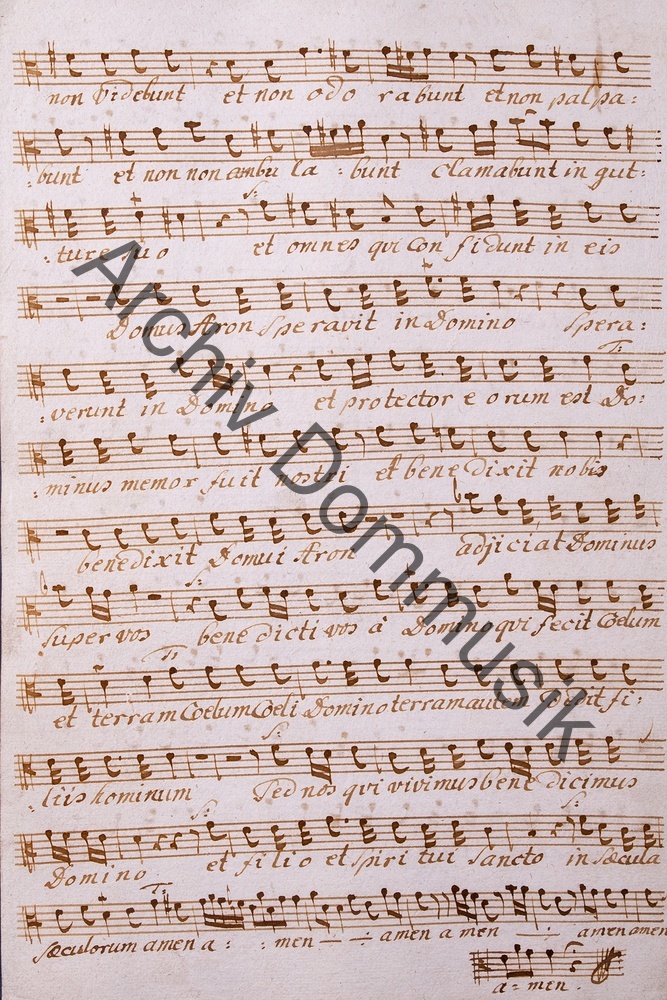 non Videbunt et non odo rabunt et non palpa:
:bunt et non non ambu la :bunt Clamabunt in gut:
S:
:ture suo et omnes qvi Con fidunt in eis
Domus Aron Speravit in Domino Spera:
T:
:verunt in Domino et protector e orum est Do:
:minus memor fuit nostri et bene dixit nobis
benedixit Domui Aron adjiciat Dominus
S:
super vos bene dicti vos à Domino qvi fecit Coelum
T:
et terram Coelum Coeli Domino terram autem dedit fi:
S:
liis hominum Sed nos qvi vivimus bene dicimus
S: S:
Domino et filio et spiri tui Sancto in Sæcula
T:
sæculorum amen a: :men —:— amen a men —:— amen amen
a=men.
Archiv Dommusik